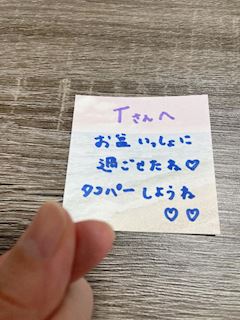 Tさんへ
お盆いっしょに
過ごせたね♡
タコパーしようね
♡♡